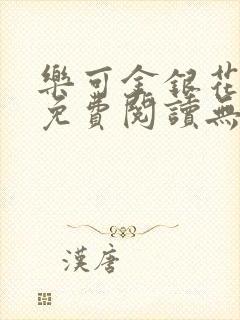 樂可金銀花
免費閱讀無
漢唐